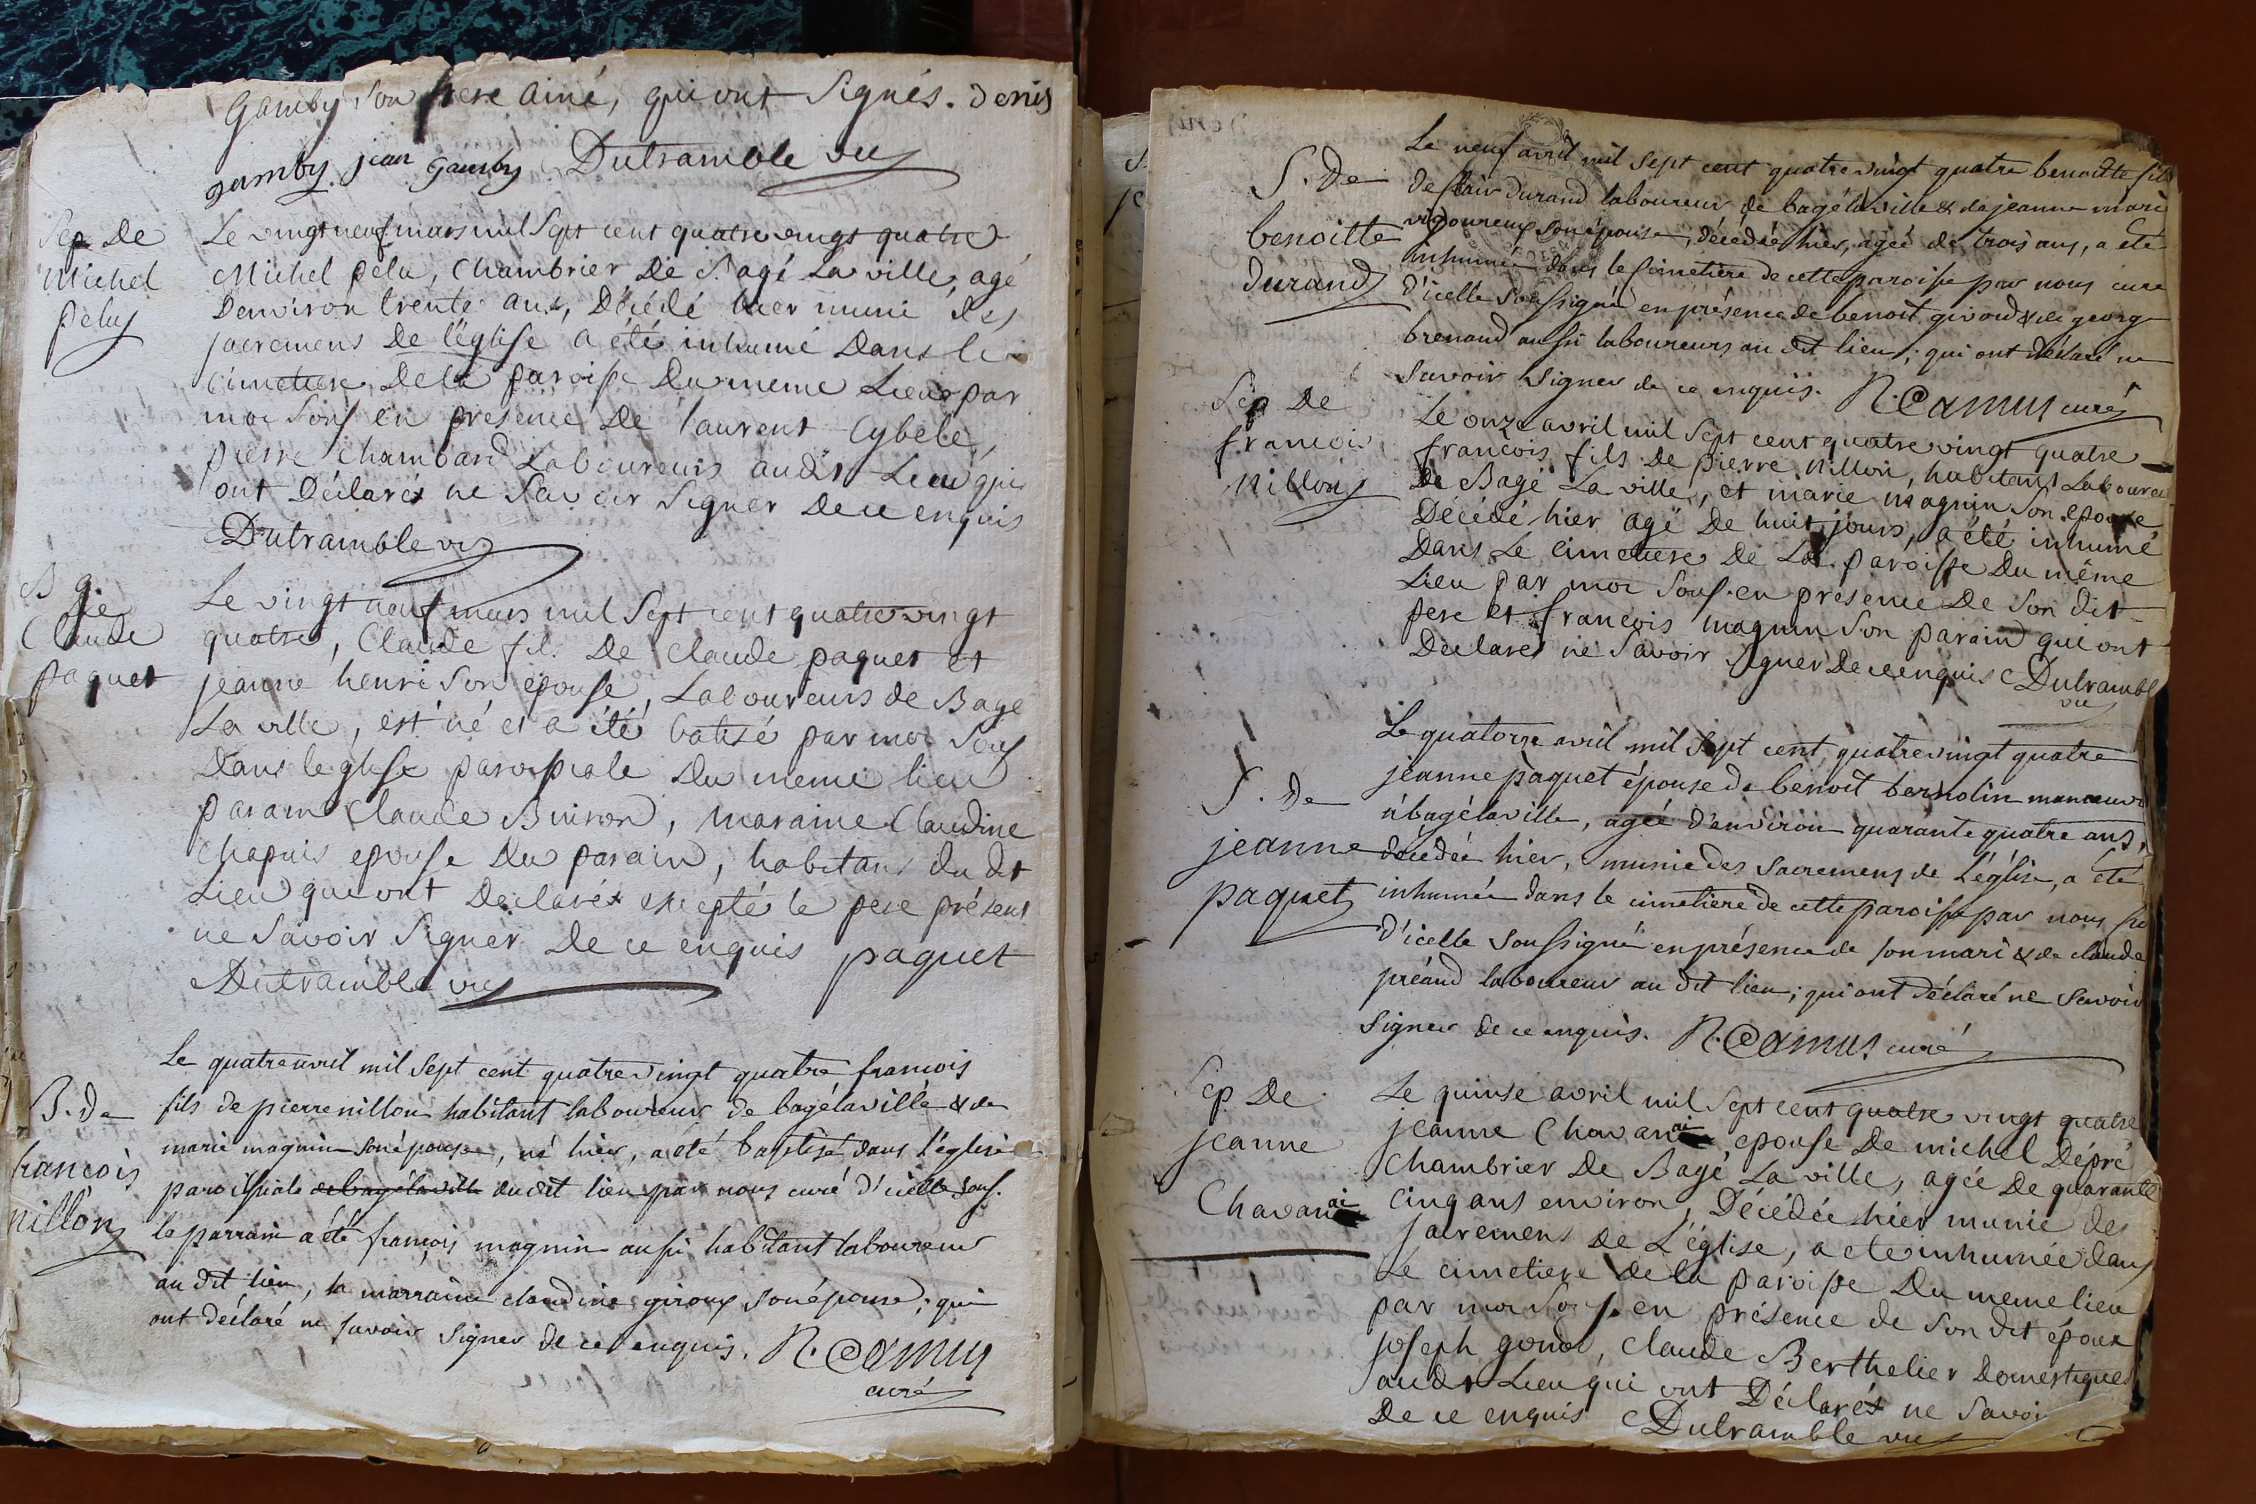 Gamby son frere ainé, qui ont signés. denis
gamby. jean gamby Dutramble vic
Sep. De
Michel
pelu
Le vingt neuf mars mil Sept cent quatre vingt quatre
Michel pelu, Chambrier De Bagé La ville, agé
D'environ trente ans, Décédé hier muni des
sacremens De l'église a été inhumé Dans le
cimetiere De la paroisse Du meme Lieu par
moi souss en presence De laurent Cybele,
pierre chambard Laboureurs audt Lieu qui
ont Déclarés ne Savoir Signer De ce enquis
Dutramble vic
B
De
Claude
paquet
Le vingt neuf mars mil Sept cent quatre vingt
quatre, Claude fils De Claude paquet et
jeanne henri Son epouse, Laboureurs de Bagé
La ville, est né et a été batisé par moi Souss
Dans leglise paroissiale Du meme lieu
parain Claude Buiron, maraine Claudine
Chapuis epouse Du parain, habitans du dt
Lieu qui ont Declarés excepté le pere présent
ne Savoir Signer De ce enquis paquet
Dutramble vic
B. de
francois
nillon
Le quatre avril mil Sept cent quatre vingt quatre francois
fils de pierre nillon habitant laboureur de bagélaville & de
marie magnin son épouse, né hier, a été baptisé dans l'église
paroissiale de bagélaville du dit lieu par nous curé d'icelle souss.
le parrain a été françois magnin aussi habitant laboureur
au dit lieu, la marraine claudine giroux son épouse; qui
ont déclaré ne savoir signer de ce enquis. N. Camus
curé
S. de
benoitte
durand
Le neuf avril mil sept cent quatre vingt quatre benoitte fille
de clair durand laboureur de bagélaville & de jeanne marie
vigoureux son épouse, décedée hier, agée de trois ans, a été
inhumée dans le cimetiere de cette paroisse par nous curé
d'icelle soussigné en présence de benoit givord & de george
brenand aussi laboureurs au dit lieu; qui ont déclaré ne
savoir signer de ce enquis. N. Camus curé
Sep De
francois
Nillon
Le onze avril mil Sept cent quatre vingt quatre
francois fils De pierre nillon, habitant Laboureur
De Bagé La ville, et marie magnin Son epouse
Décédé hier agé De huit jours, a été inhumé
Dans Le cimetiere De La paroisse Du même
Lieu par moi Souss. en présence De Son dit
pere et francois magnin Son parain qui ont
Declarés ne Savoir signer De ce enquis Dutramble
vic
S. de
jeanne
paquet
Le quatorze avril mil Sept cent quatre vingt quatre
jeanne paquet épouse de benoit bernolin manoeuvre
à bagélaville, agée d'environ quarante quatre ans,
décédée hier, munie des sacremens de l'église, a été
inhumée dans le cimetiere de cette paroisse par nous
d'icelle soussigné en présence de son mari & de claude
préand laboureur au dit lieu; qui ont déclaré ne savoir
signer de ce enquis. N. Camus curé
Sep De
jeanne
Chavanai
Le quinse avril mil Sept cent quatre vingt quatre
jeanne Chavanai epouse De michel Dépré
chambrier De Bagé La ville, agée De quarante
cinq ans environ, Décédée hier munie des
sacremens De L'église, a ete inhumée dans
Le cimetiere De la paroisse Du meme lieu
par moi souss. en présence de Son dit époux
joseph gonod, Claude Berthelier Domestiques
audt Lieu qui ont Déclarés ne Savoir
De ce enquis Dutramble vic